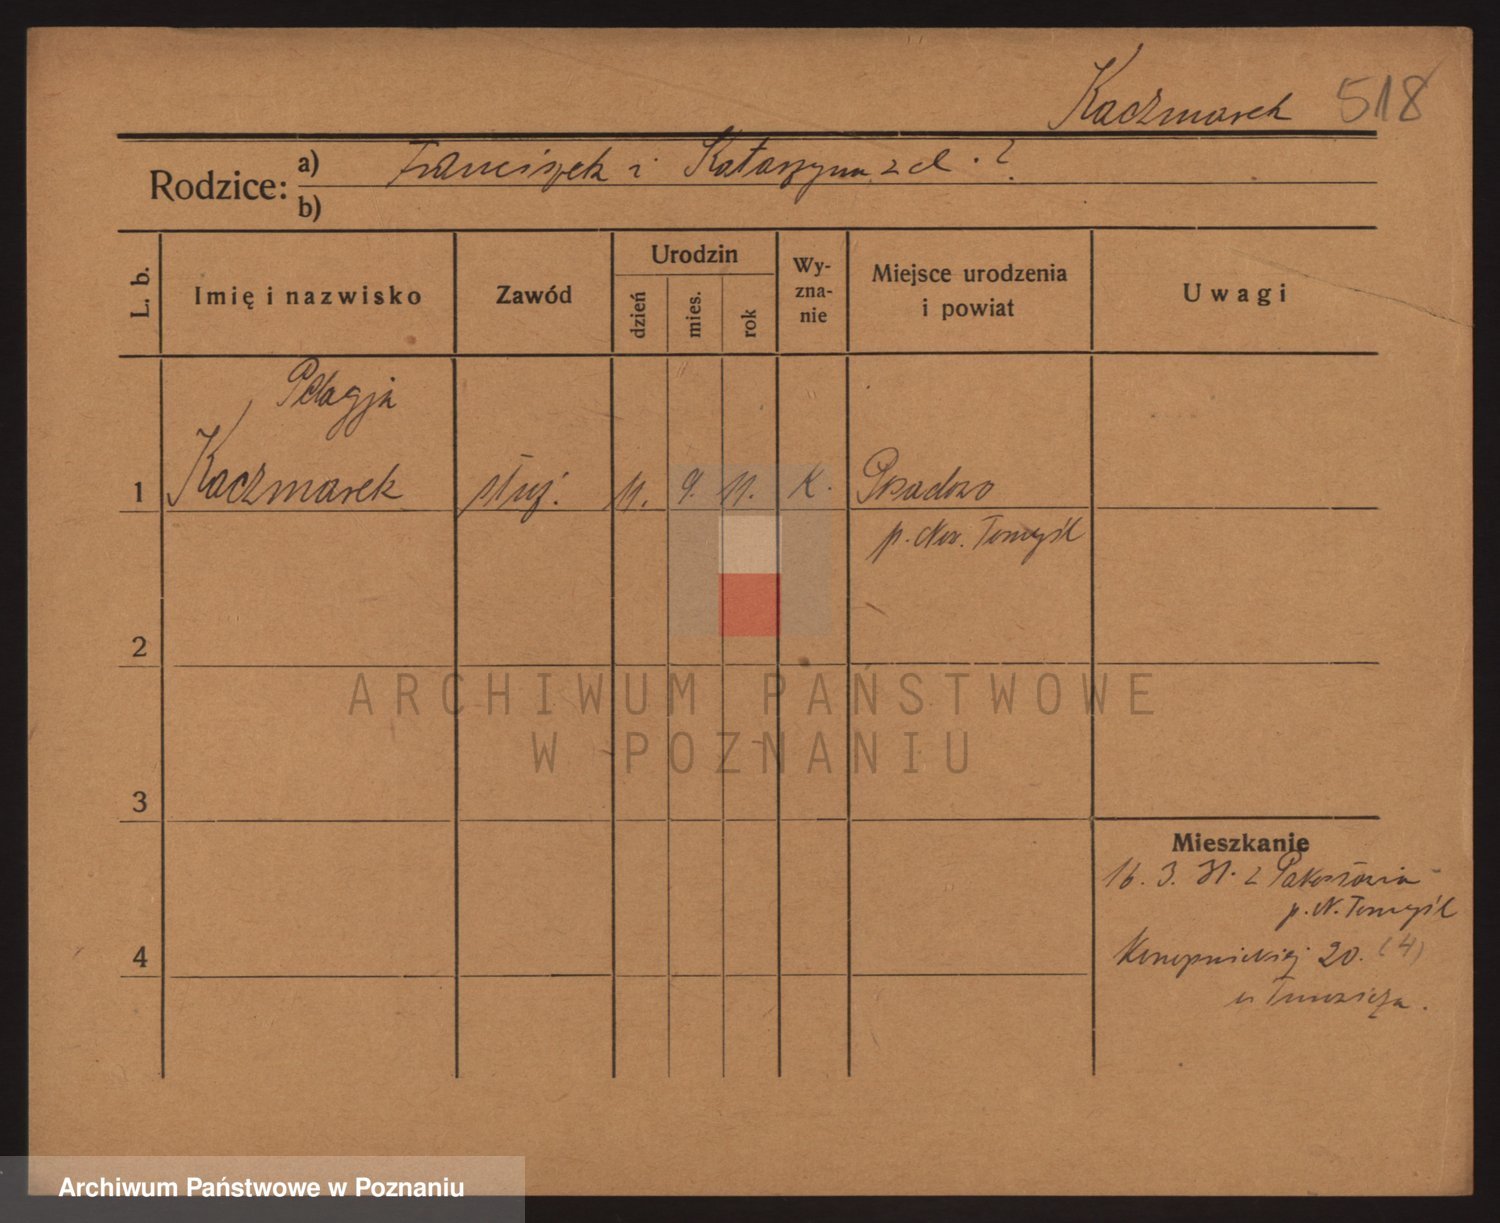 Kaczmarek 518
Rodzice: a) Franciszek i Katarzyna z d. ?
b)
L. b. Imię i nazwisko Zawód Urodzin dzień mies. rok Wy-zna-nie Miejsce urodzenia i powiat Uwagi
Pelagja
1 Kaczmarek służ. 11. 9. 11. K. Posadowo
p. Now. Tomyśl
2
3
4
Mieszkanie
16. 3. 31. z Pakosławia
p. N. Tomyśl
Konopnickiej 20. (4)
ARCHIWUM PAŃSTWOWE
W POZNANIU
Archiwum Państwowe w Poznaniu